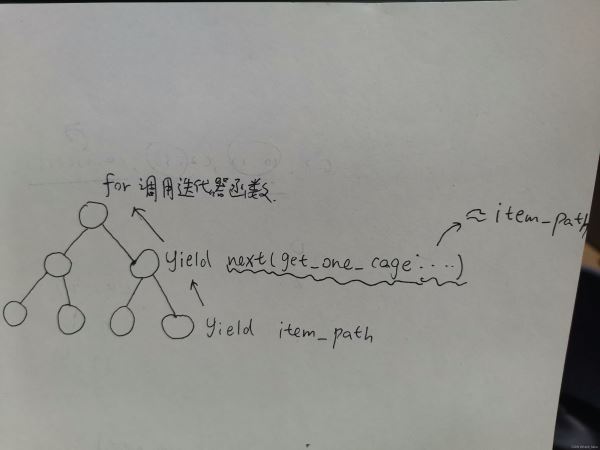 for 调用迭代器函数.
≈ item_path
yield next(get_one_cage:....)
yield item_path